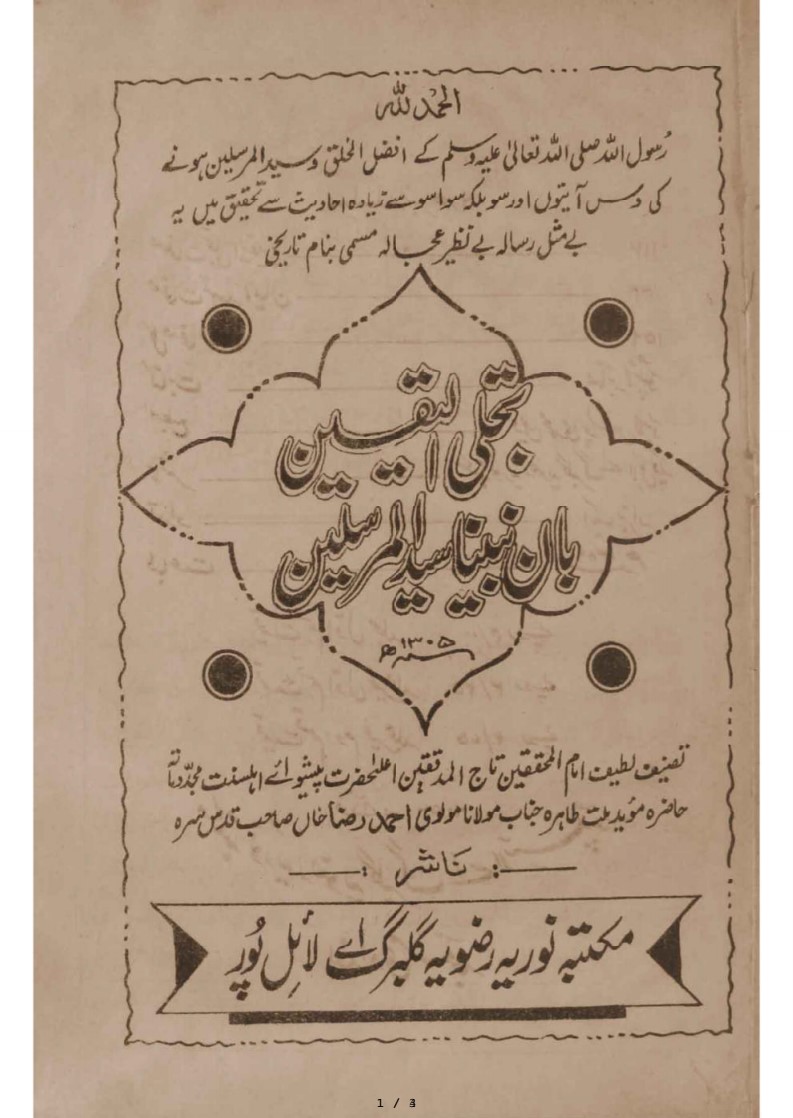 الحمد للہ
رسول اللہ صلی اللہ تعالیٰ علیہ وسلم کے افضل الخلق و سید المرسلین ہونے
کی دس آیتوں اور سو بلکہ سوا سو سے زیادہ احادیث سے تحقیق میں یہ
بے مثل رسالہ بے نظیر عجالہ مسمی بنام تاریخی
تجلی الیقین
بان نبینا سید المرسلین
۱۳۰۵ھ
تصنیف لطیف امام المحققین تاج المدققین اعلیٰحضرت پیشوائے اہلسنت مجدد مائۃ
حاضرہ مؤید ملت طاہرہ جناب مولانا مولوی احمد رضا خاں صاحب قدس سرہ
ناشر :
مکتبہ نوریہ رضویہ گلبرگ اے لائل پور
1 / 3